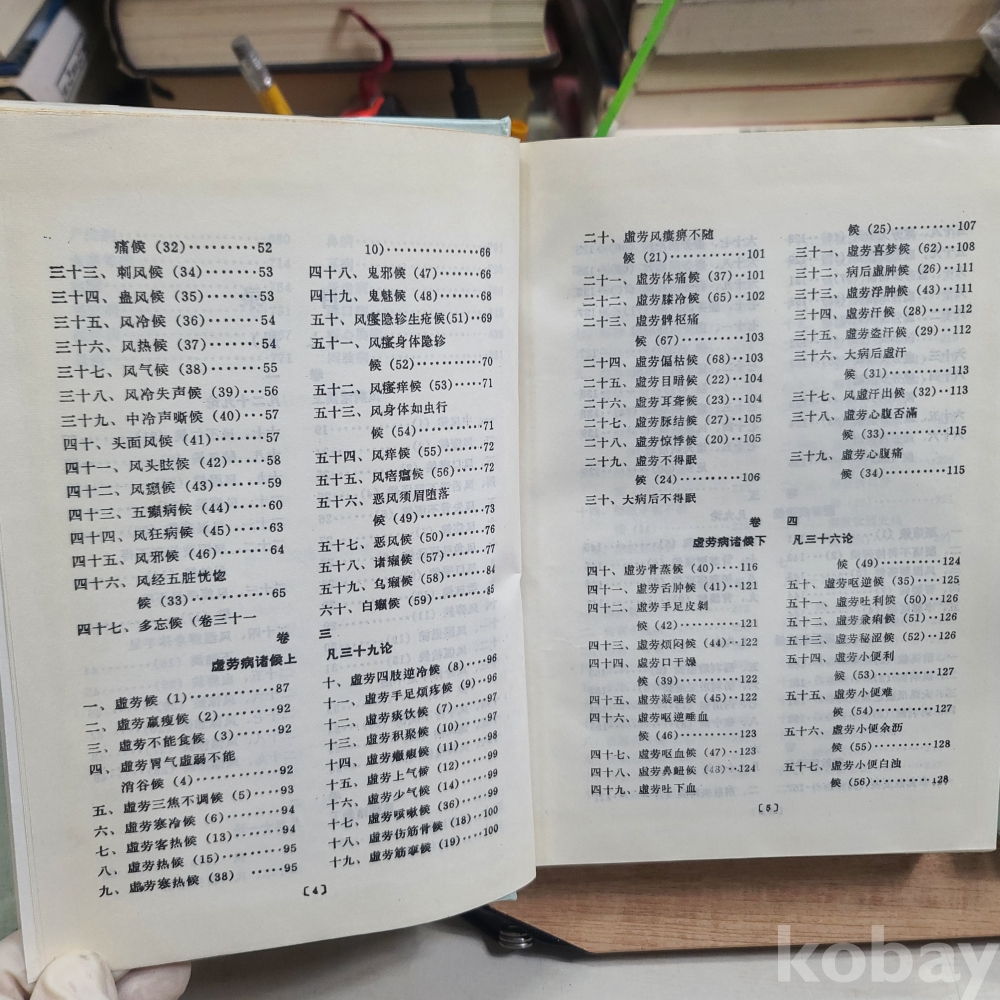 痛候（32）·········52
三十三、刺风候（34）·······53
三十四、蛊风候（35）·······53
三十五、风冷候（36）·······54
三十六、风热候（37）·······54
三十七、风气候（38）·······55
三十八、风冷失声候（39）···56
三十九、中冷声嘶候（40）···57
四十、头面风候（41）·······57
四十一、风头眩候（42）·····58
四十二、风癫候（43）·······59
四十三、五癫病候（44）·····60
四十四、风狂病候（45）·····63
四十五、风邪候（46）·······64
四十六、风经五脏恍惚
候（33）·········65
四十七、多忘候（卷三十一
10）············66
四十八、鬼邪候（47）·······66
四十九、鬼魅候（48）·······68
五十、风瘙隐轸生疮候(51)··69
五十一、风瘙身体隐轸
候（52）·········70
五十二、风瘙痒候（53）·····71
五十三、风身体如虫行
候（54）·········71
五十四、风痒候（55）·······72
五十五、风㾦𤺋候（56）·····72
五十六、恶风须眉堕落
候（49）·········73
五十七、恶风候（50）·······76
五十八、诸癞候（57）·······77
五十九、乌癞候（58）·······84
六十、白癞候（59）·········85
卷 三
虚劳病诸候上 凡三十九论
一、虚劳候（1）···········87
二、虚劳羸瘦候（2）·······92
三、虚劳不能食候（3）·····92
四、虚劳胃气虚弱不能
消谷候（4）·········92
五、虚劳三焦不调候（5）···93
六、虚劳寒冷候（6）·······94
七、虚劳客热候（13）······94
八、虚劳热候（15）········95
九、虚劳寒热候（38）·····95
十、虚劳四肢逆冷候（8）···96
十一、虚劳手足烦疼候（9）··96
十二、虚劳痰饮候（7）·····97
十三、虚劳积聚候（10）····97
十四、虚劳癥瘕候（11）····98
十五、虚劳上气候（12）····99
十六、虚劳少气候（14）····99
十七、虚劳咳嗽候（36）····99
十八、虚劳伤筋骨候（18）··100
十九、虚劳筋挛候（19）···100
〔4〕
二十、虚劳风痿痹不随
候（21）·········101
二十一、虚劳体痛候（37）··101
二十二、虚劳膝冷候（65）··102
二十三、虚劳髀枢痛
候（67）·········103
二十四、虚劳偏枯候（68）··103
二十五、虚劳目暗候（22）··104
二十六、虚劳耳聋候（23）··104
二十七、虚劳脉结候（27）··105
二十八、虚劳惊悸候（20）··105
二十九、虚劳不得眠
候（24）·········106
三十、大病后不得眠
候（25）·········107
三十一、虚劳喜梦候（62）··108
三十二、病后虚肿候（26）··111
三十三、虚劳浮肿候（43）··111
三十四、虚劳汗候（28）····112
三十五、虚劳盗汗候（29）··112
三十六、大病后虚汗
候（31）·········113
三十七、风虚汗出候（32）··113
三十八、虚劳心腹否满
候（33）·········115
三十九、虚劳心腹痛
候（34）·········115
卷 四
虚劳病诸候下 凡三十六论
四十、虚劳骨蒸候（40）···116
四十一、虚劳舌肿候（41）··121
四十二、虚劳手足皮剥
候（42）·········121
四十三、虚劳烦闷候（44）··122
四十四、虚劳口干燥
候（39）·········122
四十五、虚劳凝唾候（45）··122
四十六、虚劳呕逆唾血
候（46）·········123
四十七、虚劳呕血候（47）··123
四十八、虚劳鼻衄候（48）··124
四十九、虚劳吐下血
候（49）·········124
五十、虚劳呕逆候（35）···125
五十一、虚劳吐利候（50）··126
五十二、虚劳兼痢候（51）··126
五十三、虚劳秘涩候（52）··126
五十四、虚劳小便利
候（53）·········127
五十五、虚劳小便难
候（54）·········127
五十六、虚劳小便余沥
候（55）·········128
五十七、虚劳小便白浊
候（56）·········128
〔5〕
kobay